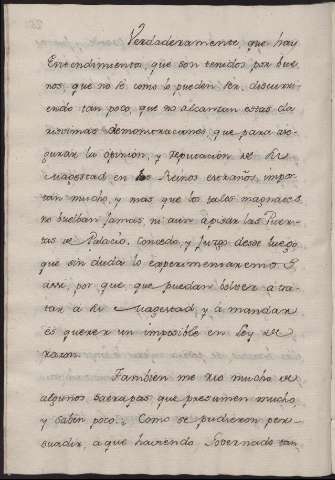 Verdaderamente, que hay
Entendimientos, que son tenidos por bue
nos, que no sè como lo pueden sèr, discurri
endo tan poco, que no alcanzan estas cla
risimas demonstraciones, que para ase
gurar la opinion, y reputacion de Su
Magestad en los Reinos estraños, impor
tan mucho, y mas que los tales
no buelban jamas, ni aun à pisar las Puer
tas de Palacio. Concedo, y juzgo desde luego
que sin duda lo experimentaremos
assi, por que que puedan bolver à tra
tar à Su Magestad, y à mandar
es querer un imposible en Ley de
razon.
Tambien me rio mucho de
algunos que presumen mucho,
y saben poco: Como se pudieron per
suadir, a que haviendo Governado tan